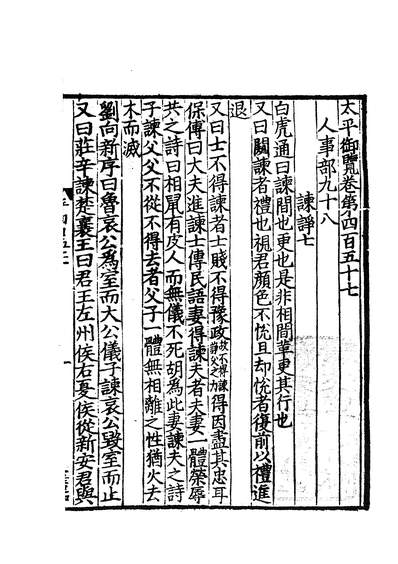 太平御覽卷第四百五十七
人事部九十八
諫諍七
白虎通曰諫間也更也是非相間革更其行也
又曰闚諫者禮也視君顏色不恱且却恱者復前以禮進
退
又曰士不得諫者士賤不得豫政故不得諫諍父之力得因盡其忠耳
保傅曰大夫進諫士傳民語妻得諫夫者夫妻一體榮辱
共之詩曰相鼠有皮人而無儀不死胡為此妻諫夫之詩
子諫父父不從不得去者父子一體無相離之性猶火去
木而滅
劉向新序曰魯哀公為室而大公儀子諫哀公毀室而止
又曰莊辛諫楚襄王曰君王左州侯右夏侯從新安君與